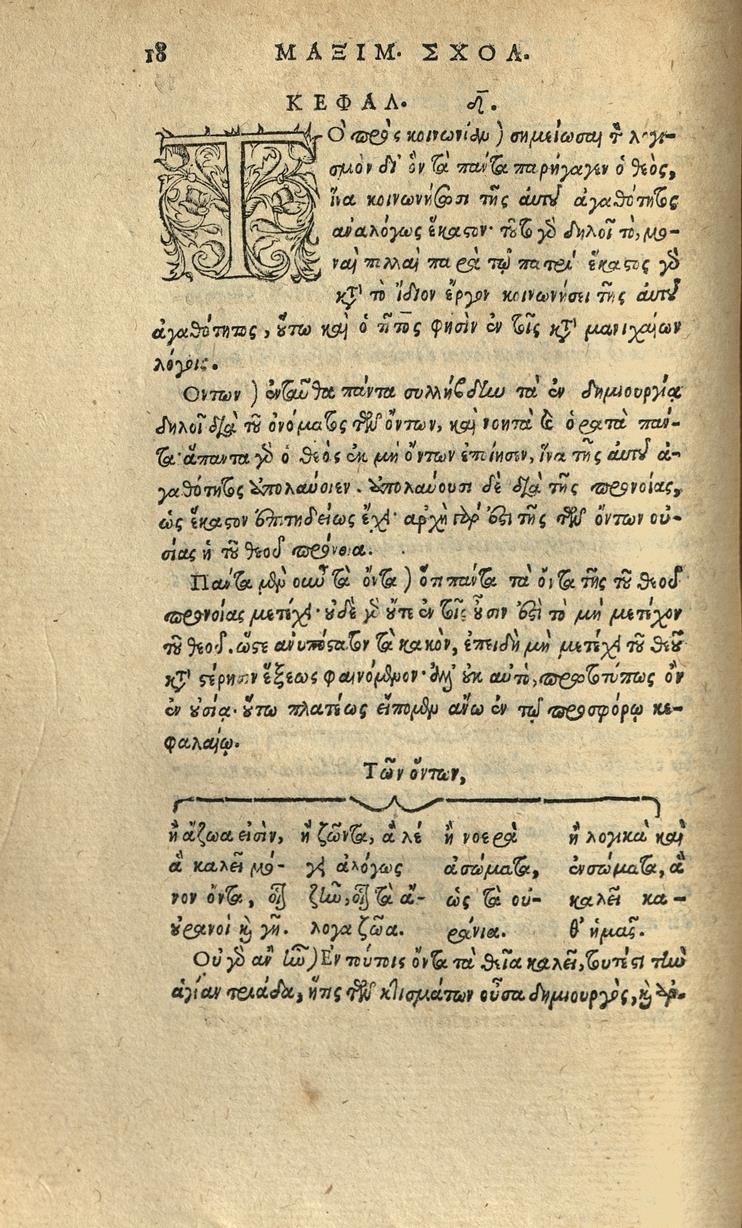 18 ΜΑΞΙΜ. ΣΧΟΛ.
ΚΕΦΑΛ. δ.
ΤΟ πρὸς κοινωνίαν) σημείωσαι τ λογι-
σμὸν δι' ὃν τὰ πάντα παρήγαγεν ὁ θεὸς,
ἵνα κοινωνήσωσι τῆς αὐτοῦ ἀγαθότητος
ἀναλόγως ἕκαστον· τοῦτο γὸ δηλοῖ τὸ, μο-
ναὶ πολλαὶ παρὰ τῷ πατρί· ἕκαστος γὸ
κτ τὸ ἴδιον ἔργον κοινωνήσει τῆς αὐτοῦ
ἀγαθότητος, οὕτω καὶ ὁ φησὶν ἐν τοῖς κτ μανιχαίων
λόγοις.
Οντων) ἐνταῦθα πάντα συλλήβδην τὰ ἐν δημιουργίᾳ
δηλοῖ διὰ τοῦ ὀνόματος τῶν ὄντων, καὶ νοητὰ καὶ ὁρατὰ πάν-
τα· ἅπαντα γὸ ὁ θεὸς ἐκ μὴ ὄντων ἐποίησεν, ἵνα τῆς αὐτοῦ ἀ-
γαθότητος ἀπολαύοιεν. ἀπολαύουσι δὲ διὰ τῆς προνοίας,
ὡς ἕκαστον ἐπιτηδείως ἔχει· ἀρχὴ γὰρ ἐστι τῆς τῶν ὄντων οὐ-
σίας ἡ τοῦ θεοῦ πρόνοια.
Πάντα μὲν οὖν τὰ ὄντα) ὅτι πάντα τὰ ὄντα τῆς τοῦ θεοῦ
προνοίας μετέχει· οὐδὲ γὸ οὔτε ἐν τοῖς οὖσιν ἐστὶ τὸ μὴ μετέχον
τοῦ θεοῦ. ὥστε ἀνυπόστατον τὰ κακὸν, ἐπειδὴ μὴ μετέχει τοῦ θεοῦ
κτ στέρησιν ἕξεως φαινόμενον· ἀλλ' οὐκ αὐτὸ, πρωτοτύπως ὂν
ἐν οὐσίᾳ· οὕτω πλατέως εἴπομεν ἄνω ἐν τῷ προσφόρῳ κε-
φαλαίῳ.
Τῶν ὄντων,
ἢ ἄζωα εἰσὶν, ἢ ζῶντα, ἃ λέ ἢ νοερὰ ἢ λογικὰ καὶ
ἃ καλεῖ μό- γει ἀλόγως ἀσώματα, ἐνσώματα, ἃ
νον ὄντα, οἷον ζῆν, οἷον τὰ ἄ- ὡς τὰ οὐ- καλεῖ κα-
οὐρανοὶ καὶ γῆ. λογα ζῶα. ράνια. θ' ἡμᾶς.
Οὐ γὸ ἂν ἦν) Εν τούτοις ὄντα τὰ θεῖα καλεῖ, τουτέστι τὴν
ἁγίαν τριάδα, ἥτις τῶν κτισμάτων οὖσα δημιουργὸς, καὶ